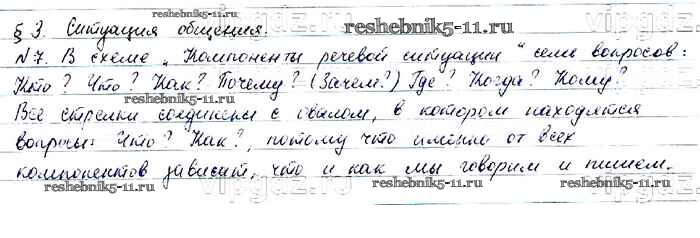 § 3. Ситуация общения.
reshebnik5-11.ru
N7. В схеме „Компоненты речевой ситуации“ семь вопросов:
Кто? Что? Как? Почему? (Зачем?) Где? Когда? Кому?
Все стрелки соединены с овалом, в котором находятся
вопросы: Что? Как?, потому что именно от всех
компонентов зависит, что и как мы говорим и пишем.
reshebnik5-11.ru reshebnik5-11.ru
reshebnik5-11.ru
vipgdz.ru